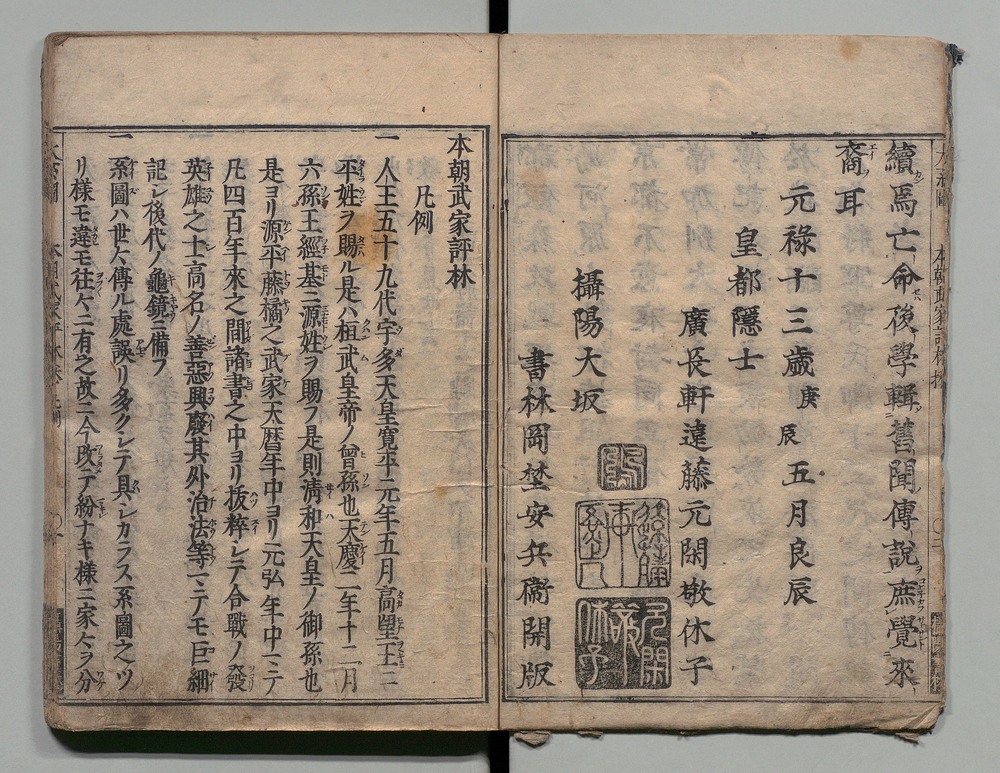 續焉亡命後學輯舊聞傳說庶覺來
裔耳
元祿十三歳庚辰五月良辰
皇都隱士
廣長軒遠藤元閑敬休子
攝陽大坂
書林岡埜安兵衞開版
本朝武家評林
凡例
一 人王五十九代宇多天皇寬平元年五月高望王ニ
平姓ヲ賜ル是ハ桓武皇帝ノ曾孫也天慶二年十二月
六孫王經基ニ源姓ヲ賜フ是則淸和天皇ノ御孫也
是ヨリ源平藤橘之武家天暦年中ヨリ元弘年中ニテ
凡四百年來之間諸書之中ヨリ抜粹レテ合戰ノ發
英雄之士高名ノ善惡興廢其外治法等ニテモ巨細
記レ後代ノ龜鏡ニ備フ
一 系圖ハ世々傳ル處誤リ多クレテ具レカラス系圖之ツ
リ樣モ違モ往々ニ有之故ニ今改テ紛ナキ樣ニ家々ヲ分